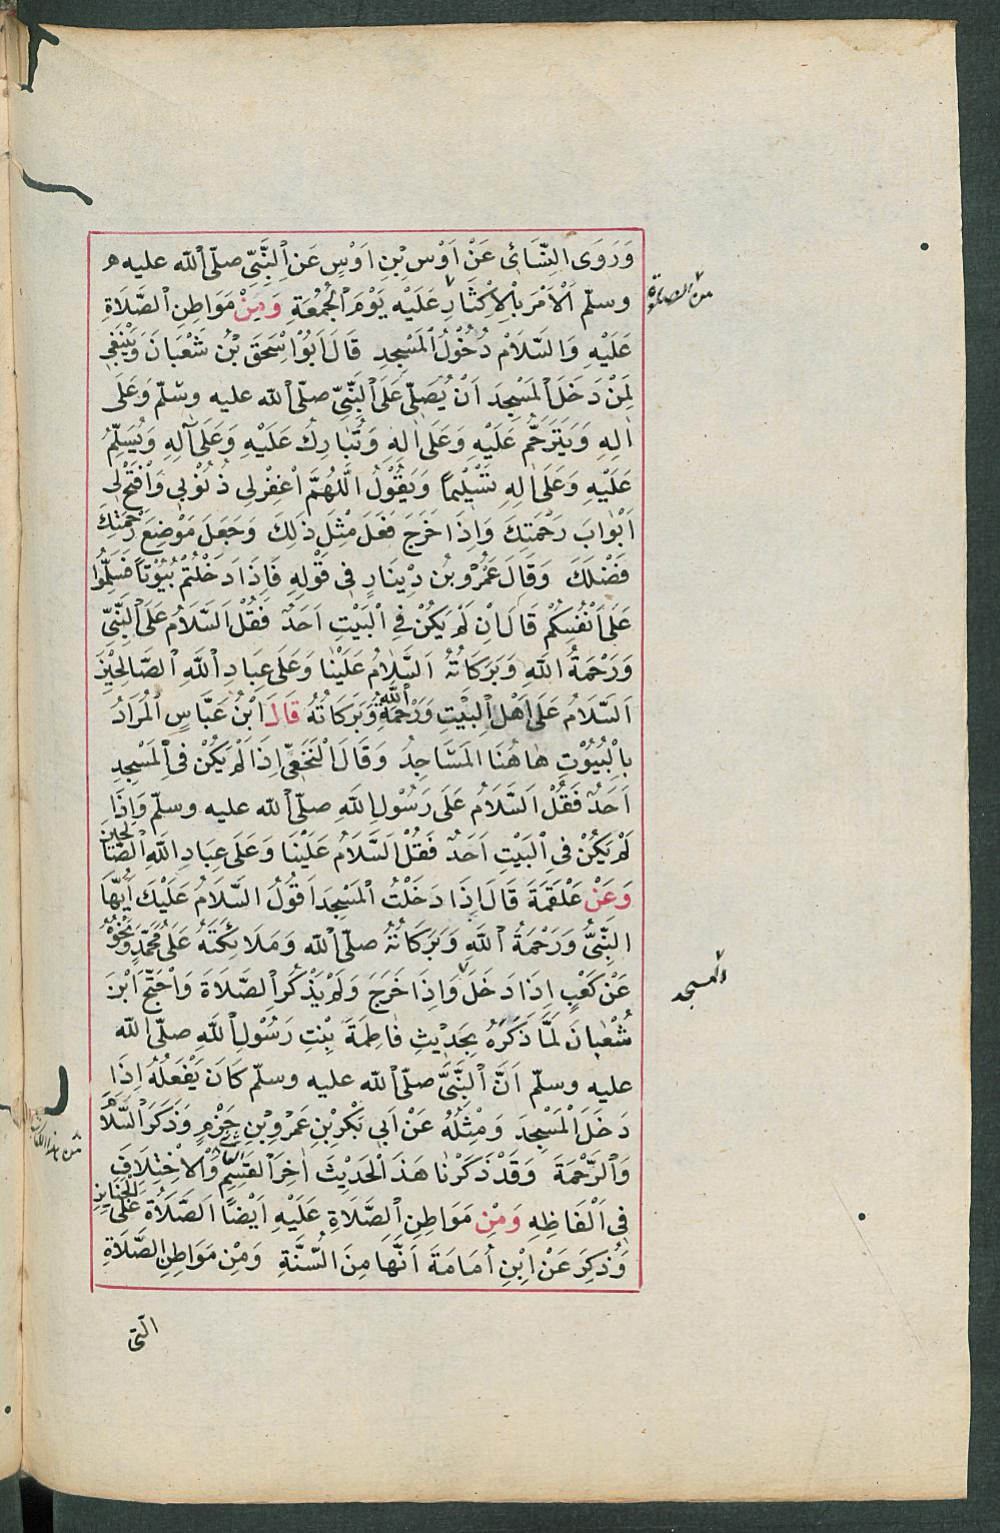 وَرَوَى النِّسَائِىُّ عَنْ اَوْسِ بْنِ اَوْسٍ عَنِ النَّبِىِّ صلّى الله عليه
وسلّم اَلْاَمْرَ بِالْاِكْثَارِ عَلَيْهِ يَوْمَ الْجُمُعَةِ وَمِنْ مَوَاطِنِ الصَّلَاةِ
من الصلوة
عَلَيْهِ وَالسَّلَامْ دُخُوْلُ الْمَسْجِدِ قَالَ اَبُوْا سْحَقَ بْنُ شَعْبَانَ وَيَنْبَغِى
لِمَنْ دَخَلَ الْمَسْجِدَ اَنْ يُصَلِّىَ عَلَى النَّبِىِّ صلّى الله عليه وسلّم وَعَلَى
اٰلِهِ وَيَتَرَحَّمُ عَلَيْهِ وَعَلَى اٰلِهِ وَتُبَارِكُ عَلَيْهِ وَعَلَى آلِهِ وَيُسَلِّمُ
عَلَيْهِ وَعَلَى اٰلِهِ تَسْلِيْماً وَيَقُوْلُ اللّٰهُمَّ اغْفِرْلِى ذُنُوْبِى وَافْتَحْ لِى
اَبْوَابَ رَحْمَتِكَ وَاِذَا خَرَجَ فَعَلَ مِثْلَ ذٰلِكَ وَجَعَلَ مَوْضِعَ رَحْمَتِكَ
فَضْلَكَ وَقَالَ عَمْرُو بْنُ دِيْنَارٍ فِى قَوْلِهِ فَاِذَا دَخَلْتُمْ بُيُوْتاً فَسَلِّمُوا
عَلَى اَنْفُسِكُمْ قَالَ اِنْ لَمْ يَكُنْ فِى الْبَيْتِ اَحَدٌ فَقُلْ اَلسَّلَامُ عَلَى النَّبِىِّ
وَرَحْمَةُ اللهِ وَبَرَكَاتُهُ اَلسَّلَامُ عَلَيْنَا وَعَلَى عِبَادِ اللهِ الصَّالِحِيْنَ
اَلسَّلَامُ عَلَى اَهْلِ الْبَيْتِ وَرَحْمَةُ اللهِ وَبَرَكَاتُهُ قَالَ ابْنُ عَبَّاسٍ الْمُرَادُ
بِالْبُيُوْتِ هَاهُنَا الْمَسَاجِدُ وَقَالَ النَّخَعِىُّ اِذَا لَمْ يَكُنْ فِى الْمَسْجِدِ
اَحَدٌ فَقُلْ اَلسَّلَامُ عَلَى رَسُوْلِ اللهِ صلّى الله عليه وسلّم وَاِذَا
لَمْ يَكُنْ فِى الْبَيْتِ اَحَدٌ فَقُلْ اَلسَّلَامُ عَلَيْنَا وَعَلَى عِبَادِ اللهِ الصَّالحين
وَعَنْ عَلْقَمَةَ قَالَ اِذَا دَخَلْتُ الْمَسْجِدَ اَقُوْلُ السَّلَامُ عَلَيْكَ اَيُّهَا
النَّبِىُّ وَرَحْمَةُ اللهِ وَبَرَكَاتُهُ صلّى الله وَمَلَائِكَتَهُ عَلَى مُحَمَّدٍ وَنَحْوُهُ
عَنْ كَعْبٍ اِذَا دَخَلَ وَاِذَا خَرَجَ وَلَمْ يَذْكُرِ الصَّلَاةَ وَاحْتَجَّ اَبْنُ
المسجد
شَعْبَانَ لَمَّا ذَكَرَهُ بِحَدِيْثِ فَاطِمَةَ بِنْتِ رَسُوْلِ اللهِ صلّى الله
عليه وسلّم اَنَّ النَّبِىَّ صلّى الله عليه وسلّم كَانَ يَفْعَلُهُ اِذَا
دَخَلَ الْمَسْجِدَ وَمِثْلُهُ عَنْ اَبِى بَكْرِ بْنِ عَمْرِو بْنِ حَزْمٍ وَذَكَرَ السَّلَامَ
وَالرَّحْمَةَ وَقَدْ ذَكَرْنَا هَذَ الْحَدِيْثَ اٰخِرَ الْقَسِمِ وَالْاِخْتِلَافِ
من هذا الكتاب
فِى اَلْفَاظِهِ وَمِنْ مَوَاطِنِ الصَّلَاةِ عَلَيْهِ اَيْضًا الصَّلَاةُ عَلَى الجنايز
وَذُكِرَ عَنْ اِبْنِ اُمَامَةَ اَنَّهَا مِنَ السُّنَّةِ وَمِنْ مَوَاطِنِ الصَّلَاةِ
الّتى